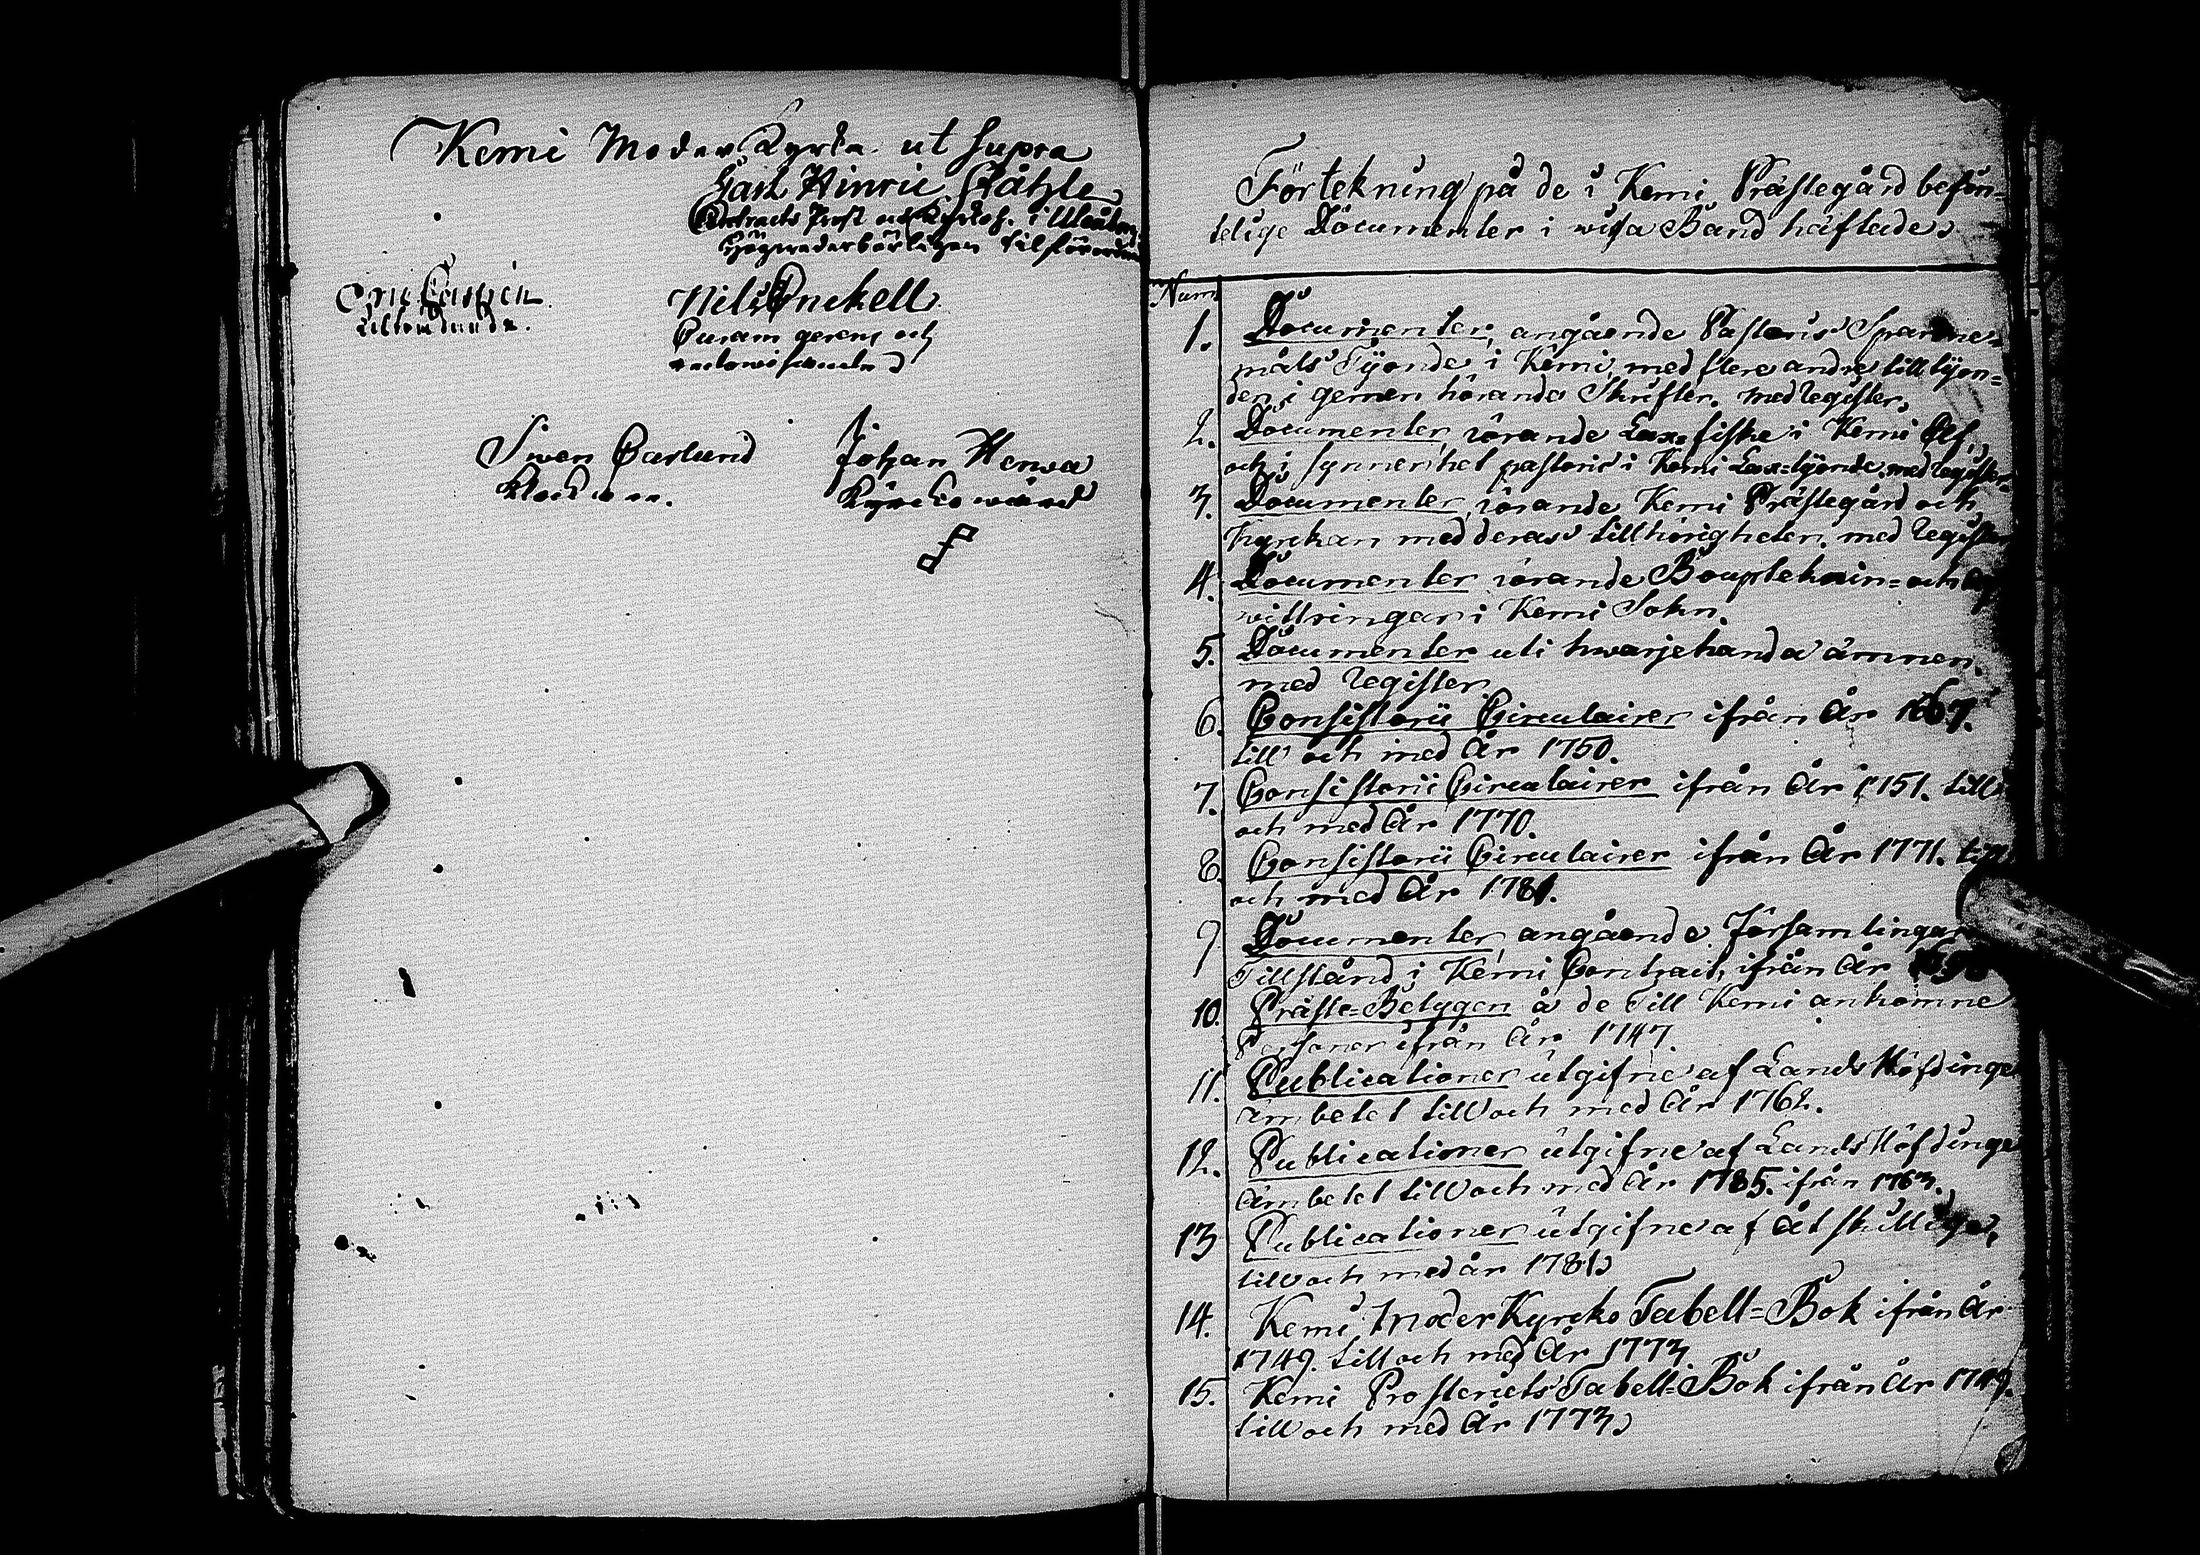 Kemi Moder Kyrka ut supra
Carl Hinric Ståhle
Contracts Prost och Kyrkoh. i Uleåborg
Högwederbörligen tilförordnad
Eric Castrén
tiltredande.
Nils Fnckell
Curam gerens och
redowisande
Swen Barlund
klockare.
Johan Herwa
Kyrckowärd
Förtekning på de i Kemi Prästegård befin-
telige Documenter i wissa Band häftade
Num
1. Documenter, angående Pastoris Spanne-
måls Tijonde i Kemi, med flere andre till tijon=
den i gemen hörande Skrifter. med Register.
2. Documenter rörande Lax-fiske i Kemi Elf.
och i synnerhet pastoris i Kemi Lax=tijonde, med Register.
3. Documenter, rörande Kemi Prästegård och
Kyrckan med deras tillhörigheter. med Register
4. Documenter rörande Boupteknin= och
wittringar i Kemi Sokn.
5. Documenter uti hwarjehanda ämnen.
med Register
6. Consistorii Circulairer ifrån År 1667.
till och med År 1750.
7. Consistorii Circulairer ifrån År 1751. till
och med År 1770.
8. Consistorii Circulairer ifrån År 1771. till
och med År 1781.
9 Documenter angående Församlingar
Tillstånd i Kemi Contract, ifrån År
10. Präste=Betygen å de Till Kemi ankomne
Personer ifrån År 1747.
11. Publicationer utgifne af Lands Höfdinge
Ämbetet till och med År 1762.
12. Publicationer utgifne af Lands Höfdinge
Ämbetet till och med År 1785. ifrån 1763.
13 Publicationer utgifne af Åtskillige,
till och med år 1781
14. Kemi Moder Kyrcko Tabell=Bok ifrån År
1749. till och med År 1773
15. Kemi Prosteriets Tabell=Bok ifrån År 1749.
till och med År 1773